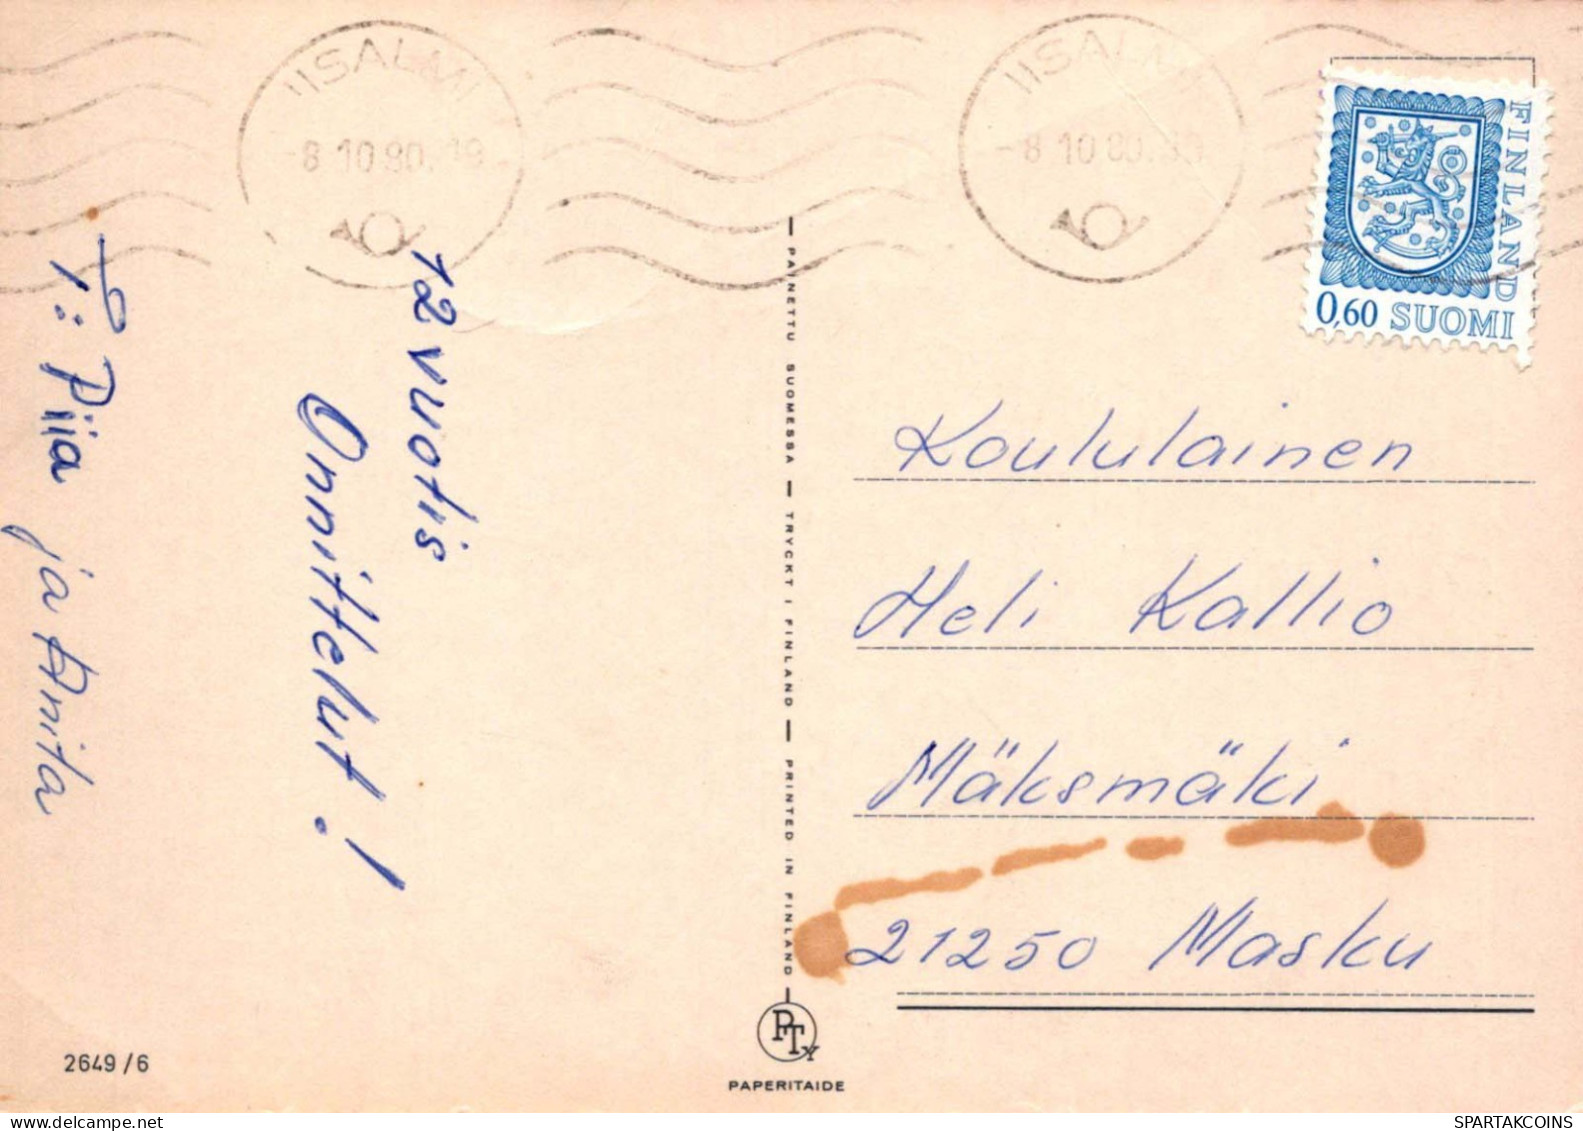 IISALMI
-8.10.80.19
IISALMI
-8.10.80.
FINLAND
0,60 SUOMI
12 vuotis
Onnittelut!
T: Piia ja Anita
PAINETTU SUOMESSA — TRYCKT I FINLAND — PRINTED IN FINLAND
Koululainen
Heli Kallio
Mäksmäki
21250 Masku
PTy
PAPERITAIDE
2649/6
SPARTAKCOINS.COM